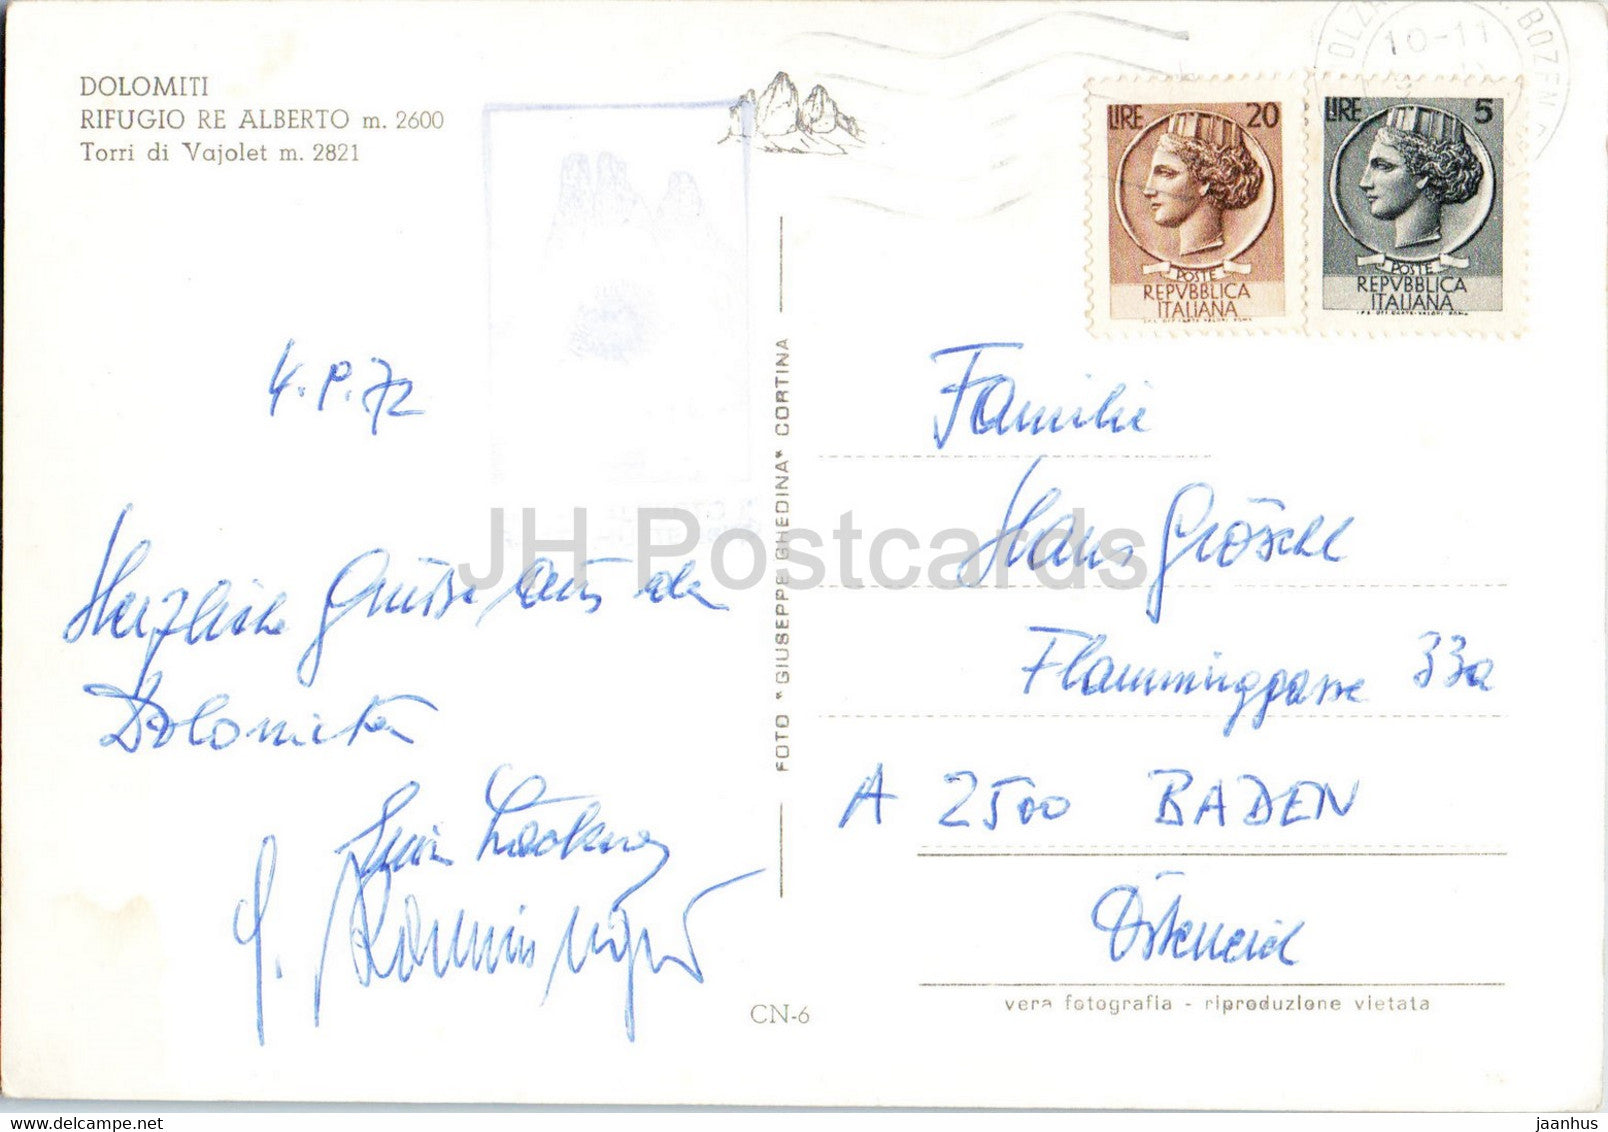 DOLOMITI
RIFUGIO RE ALBERTO m. 2600
Torri di Vajolet m. 2821
4. P. 72
Herzliche Grüsse aus den
Dolomiten
FOTO "GIUSEPPE GHEDINA" CORTINA
CN-6
BOZEN
10-11
LIRE 20
POSTE
REPVBBLICA
ITALIANA
LIRE 5
POSTE
REPVBBLICA
ITALIANA
Familie
Hans Gröschl
Flamminggasse 33a
A 2500 BADEN
Österreich
vera fotografia - riproduzione vietata
JH Postcards
jaanhus